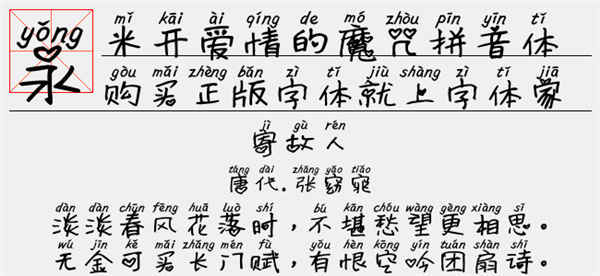 yǒng
永
mǐ kāi ài qíng de mó zhòu pīn yīn tǐ
米开爱情的魔咒拼音体
gòu mǎi zhèng bǎn zì tǐ jiù shàng zì tǐ jiā
购买正版字体就上字体家
jì gù rén
寄故人
táng dài zhāng yǎo tiǎo
唐代.张窈窕
dàn dàn chūn fēng huā luò shí bù kān chóu wàng gèng xiàng sī
淡淡春风花落时，不堪愁望更相思。
wú jīn kě mǎi zhǎng mén fù yǒu hèn kōng yín tuán shàn shī
无金可买长门赋，有恨空吟团扇诗。